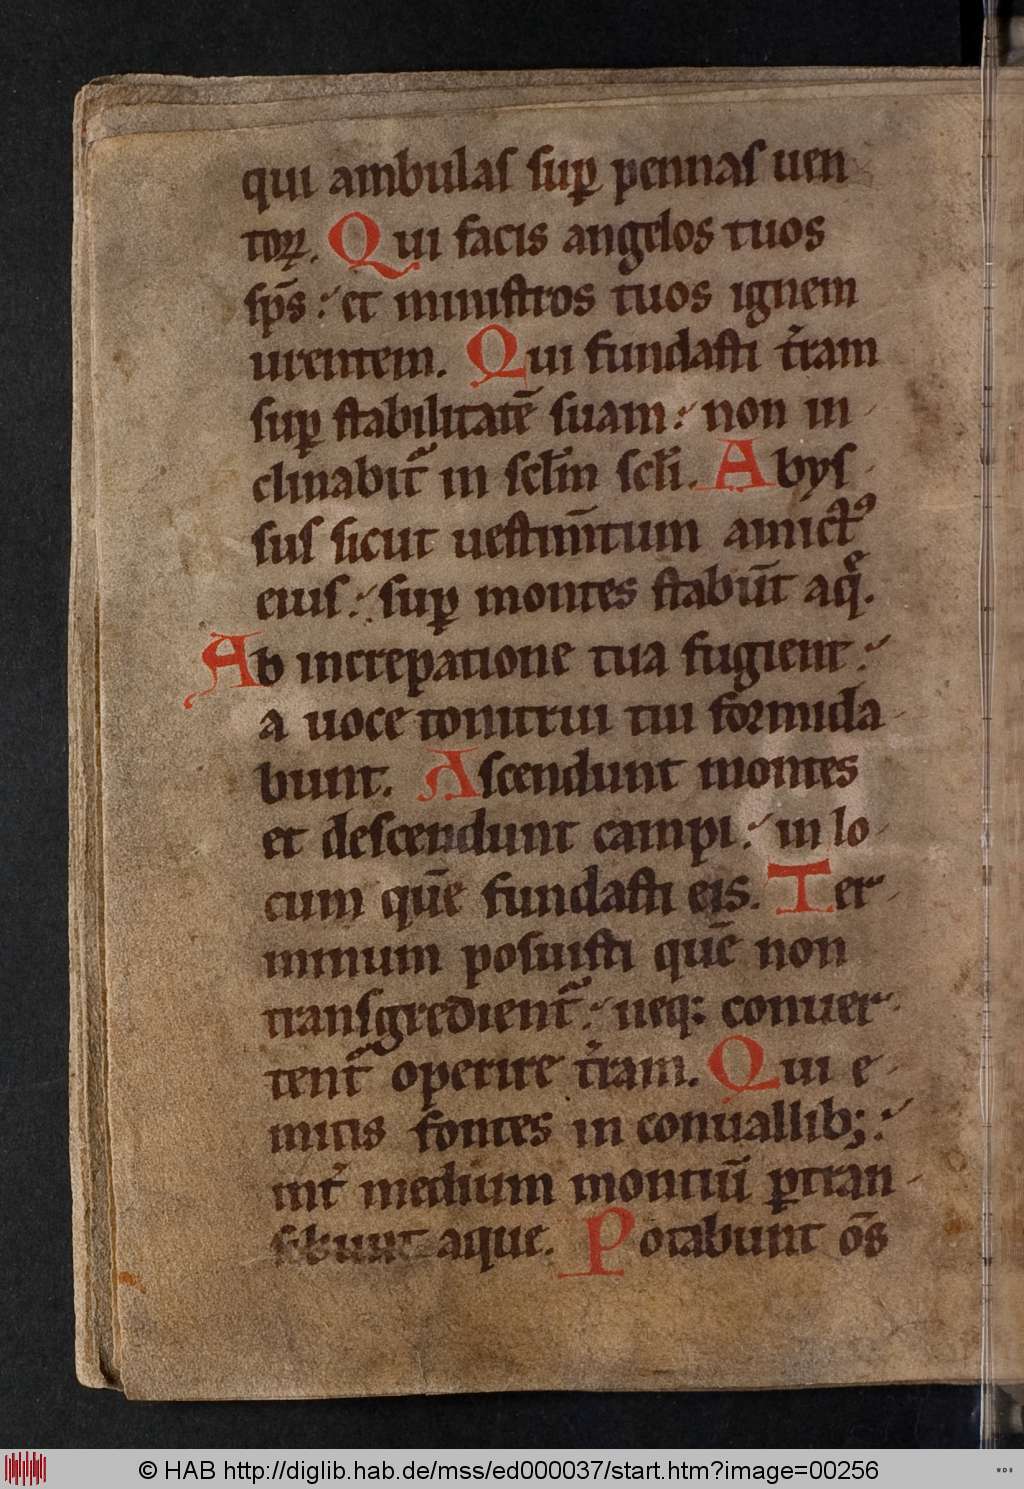 qui ambulas suꝑ pennas uen
toꝝ. Qui facis angelos tuos
sp̅s : et ministros tuos ignem
urentem. Qui fundasti t̉ram
suꝑ stabilitatē suam : non in
clinabit᷑ in sc̅lm sc̅li. Abys
sus sicut uestim̅tum amictꝰ
eius : suꝑ montes stabūt aq̄.
Ab increpatione tua fugient :
a uoce tonitrui tui formida
bunt. Ascendunt montes
et descendunt campi : in lo
cum quē fundasti eis. Ter
minum posuisti quē non
transgredient᷑ : neq: conuer
tent᷑ operire t̉ram. Qui e
mitis fontes in conuallib; :
int̉ medium montiū ꝑtran
sibunt aque. Potabunt om̅s
© HAB http://diglib.hab.de/mss/ed000037/start.htm?image=00256